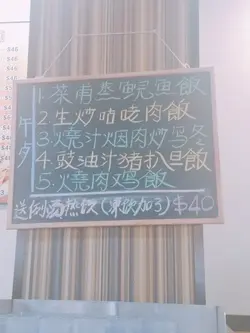 午夕
1.菜甫蒸鲩魚飯
2.生炒咕咾肉飯
3.燒汁烟肉炒乌冬
4.豉油汁猪扒旦飯
5.燒肉鸡飯
送例湯热饮(凍饮加3) $40